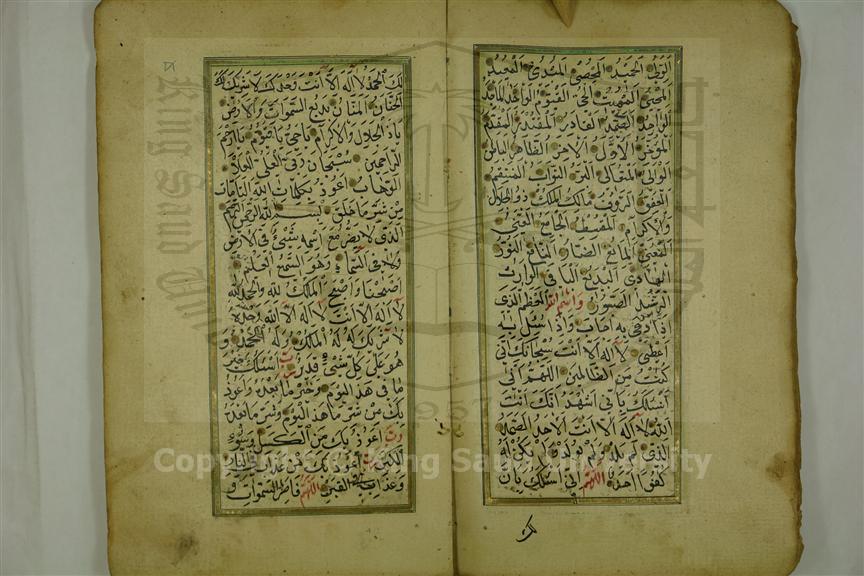 الولي الحميد المحصي المبدئ المعيد
المحيي المميت الحي القيوم الواجد الماجد
الواحد الصمد القادر المقتدر المقدم
المؤخر الاول الاخر الظاهر الباطن
الوالي المتعالي البر التواب المنتقم
العفو الرؤف مالك الملك ذو الجلال
والاكرام المقسط الجامع الغني
المغني المانع الضار النافع النور
الهادي البديع الباقي الوارث
الرشيد الصبور واسم الله الاعظم الذي
اذا دعي به اجاب واذا سئل به
اعطى لا اله الا انت سبحانك اني
كنت من الظالمين اللهم اني
اسئلك باني اشهد انك انت
الله لا اله الا انت الاحد الصمد
الذي لم يلد ولم يولد ولم يكن له
كفوا احد اللهم اني اسئلك بان
لك
لك الحمد لا اله الا انت وحدك لا شريك لك
الحنان المنان بديع السموات والارض
يا ذا الجلال والاكرام يا حي يا قيوم يا ارحم
الراحمين سبحان ربي العلي الاعلى
الوهاب اعوذ بكلمات الله التامات
من شر ما خلق بسم الله الرحمن الرحيم
الذي لا يضر مع اسمه شئ في الارض
ولا في السماء وهو السميع العليم
اصبحنا واصبح الملك لله والحمد لله
لا اله الا انت لا اله الا الله وحده
لا شريك له له الملك وله الحمد و
هو على كل شئ قدير رب اسئلك خير
ما في هذ اليوم وخير ما بعده واعوذ
بك من شر ما هذ اليوم وشر ما بعده
رب اعوذ بك من الكسل وسوء
الكبر رب اعوذ بك من عذاب النار
وعذاب القبر اللهم فاطر السموات و
Copyright © King Saud University
King Saud University
1957